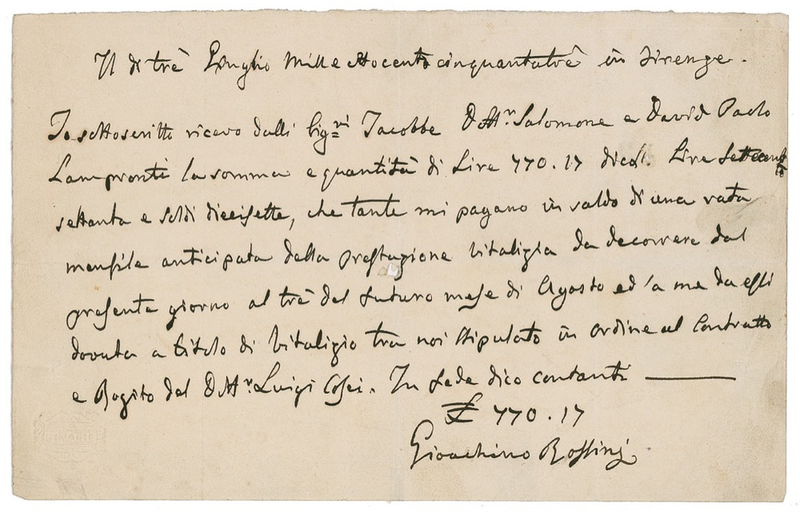 Il di trè Luglio Mille ottocento cinquantatrè in Firenze.
Io sottoscritto ricevo dalli Sig.ri Jacobbe Dott.r Salomone e David Paolo
Lampronti la somma e quantità di Lire 770.17 dicesi Lire Settecento
settanta e soldi diecisette, che tante mi pagano in saldo di una rata
mensile anticipata della prestazione vitalizia da decorrere dal
presente giorno al trè del futuro mese di Agosto ed a me da essi
dovuta a titolo di Vitalizio tra noi stipulato in ordine al Contratto
e Rogito del Dott.r Luigi In fede dico contanti
£ 770.17
Gioachino Rossini